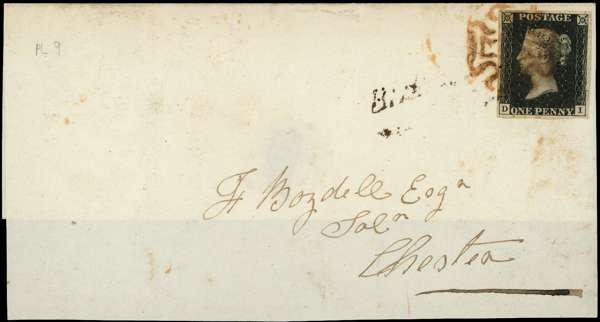 PL 9
POSTAGE
ONE PENNY
D I
F Bozdell Esqr
Solr
Chester